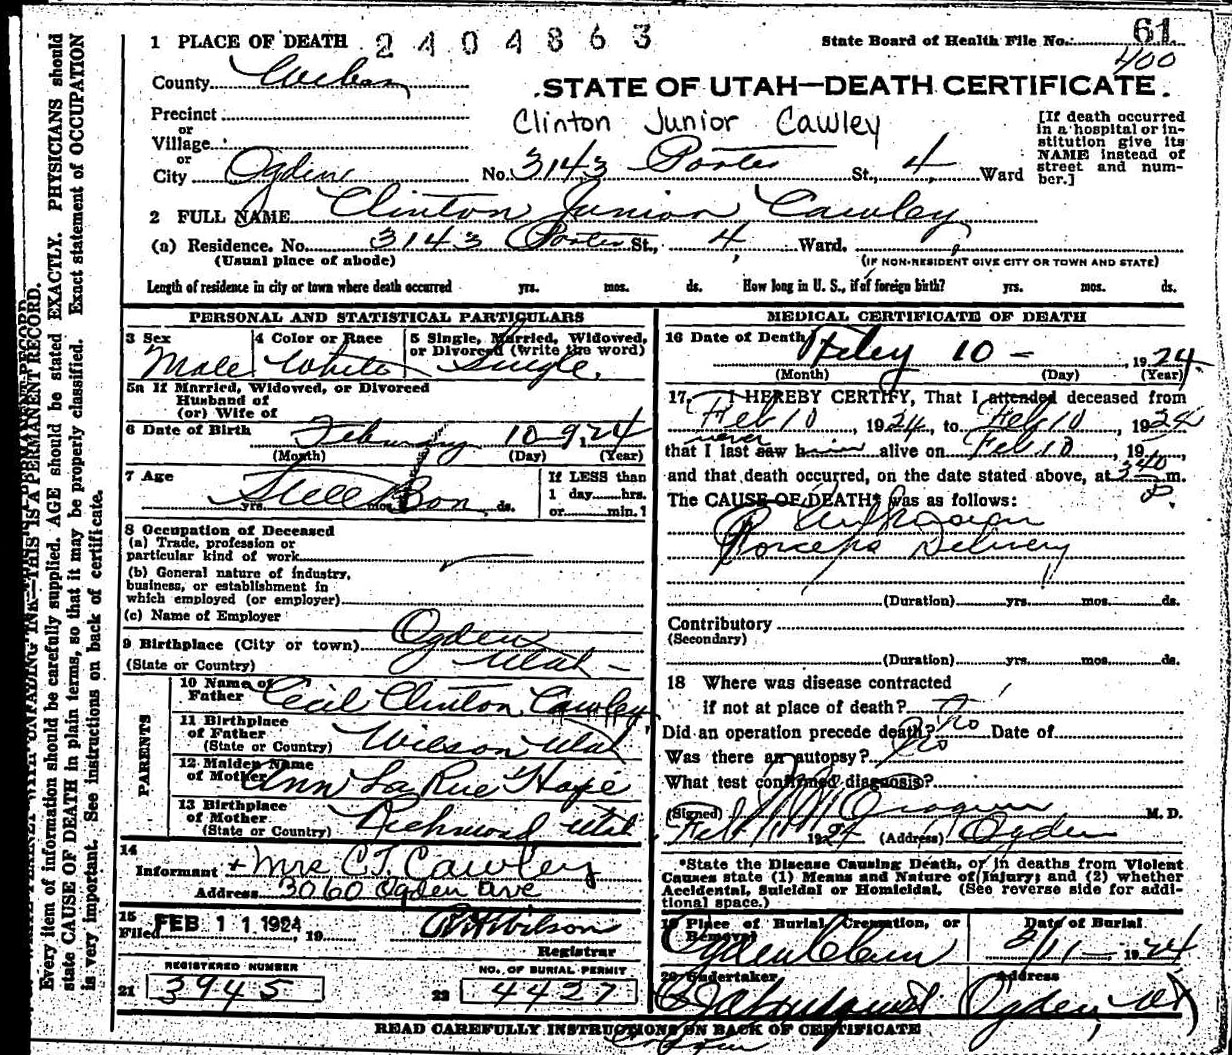 1 PLACE OF DEATH 2404863 State Board of Health File No. 61
400
County Weber
.STATE OF UTAH—DEATH CERTIFICATE.
Precinct
or
Village
or
City Ogden No. 3143 Porter St., 4, Ward
Clinton Junior Cawley
[If death occurred
in a hospital or in-
stitution give its
NAME instead of
street and num-
ber.]
2 FULL NAME Clinton Junior Cawley
(a) Residence. No. 3143 Porter St., 4, Ward.
(Usual place of abode) (IF NON-RESIDENT GIVE CITY OR TOWN AND STATE)
Length of residence in city or town where death occurred yrs. mos. ds. How long in U. S., if of foreign birth? yrs. mos. ds.
PERSONAL AND STATISTICAL PARTICULARS
3 Sex 4 Color or Race 5 Single, Married, Widowed,
or Divorced (write the word)
Male White Single.
5a If Married, Widowed, or Divorced
Husband of
(or) Wife of
6 Date of Birth February 10- 1924
(Month) (Day) (Year)
7 Age Still Born
yrs. mos. ds.
If LESS than
1 day hrs.
or min.?
8 Occupation of Deceased
(a) Trade, profession or
particular kind of work
(b) General nature of industry,
business, or establishment in
which employed (or employer)
(c) Name of Employer
9 Birthplace (City or town) Ogden
(State or Country) Utah -
PARENTS
10 Name of
Father Cecil Clinton Cawley
11 Birthplace
of Father
(State or Country) Wilson Utah
12 Maiden Name
of Mother Ann La Rue
13 Birthplace
of Mother
(State or Country) Richmond Utah
14
Informant + Mrs C. T. Cawley
Address 3060 Ogden Ave
15
Filed FEB 11 1924, 19 Wilson
Registrar
REGISTERED NUMBER NO. OF BURIAL PERMIT
21 3945 22 4427
MEDICAL CERTIFICATE OF DEATH
16 Date of Death 10 - 1924
(Month) (Day) (Year)
17. I HEREBY CERTIFY, That I attended deceased from
Feb 10, 1924, to Feb 10, 1924
never
that I last saw him alive on Feb 10, 19
and that death occurred, on the date stated above, at 340 P m.
The CAUSE OF DEATH* was as follows:
Unknown
Forceps Delivery
(Duration) yrs. mos. ds.
Contributory
(Secondary)
(Duration) yrs. mos. ds.
18 Where was disease contracted
if not at place of death?
Did an operation precede death? No Date of
Was there an autopsy? No
What test confirmed diagnosis?
(Signed) M. D.
Feb 1924 (Address) Ogden
*State the Disease Causing Death, or in deaths from Violent
Causes state (1) Means and Nature of Injury; and (2) whether
Accidental, Suicidal or Homicidal. (See reverse side for addi-
tional space.)
19 Place of Burial, Cremation, or
Removal Date of Burial
Ogden 2/11 - 1924
20 Undertaker Address
Ogden, Ut
READ CAREFULLY INSTRUCTIONS ON BACK OF CERTIFICATE
THIS IS A PERMANENT RECORD.
Every item of information should be carefully supplied. AGE should be stated EXACTLY. PHYSICIANS should
state CAUSE OF DEATH in plain terms, so that it may be properly classified. Exact statement of OCCUPATION
is very important. See instructions on back of certificate.